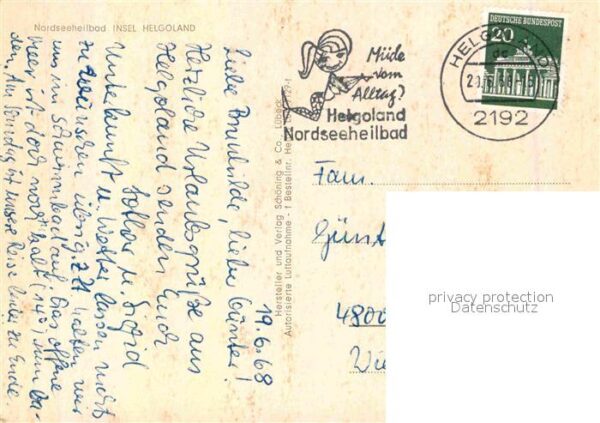 Nordseeheilbad INSEL HELGOLAND
19.6.68
Liebe Brunhilde, lieber Günter!
Herzliche Urlaubsgrüße aus
Helgoland senden Euch
u. Sigrid
Unterkunft u. Wetter lassen nichts
zu wünschen übrig. Z.Zt. halten wir
uns im Schwimmbad auf. Das offene
Meer ist doch noch kalt (14°) zum Ba-
den. Am Sonntag ist unsere Reise leider zu Ende.
Hersteller und Verlag Schöning & Co., Lübeck
Autorisierte Luftaufnahme - † Bestellnr. Hel
Müde
vom
Alltag?
Helgoland
Nordseeheilbad
HELGOLAND
2192
DEUTSCHE BUNDESPOST
20
Fam.
Günt
4800
Bie
privacy protection
Datenschutz